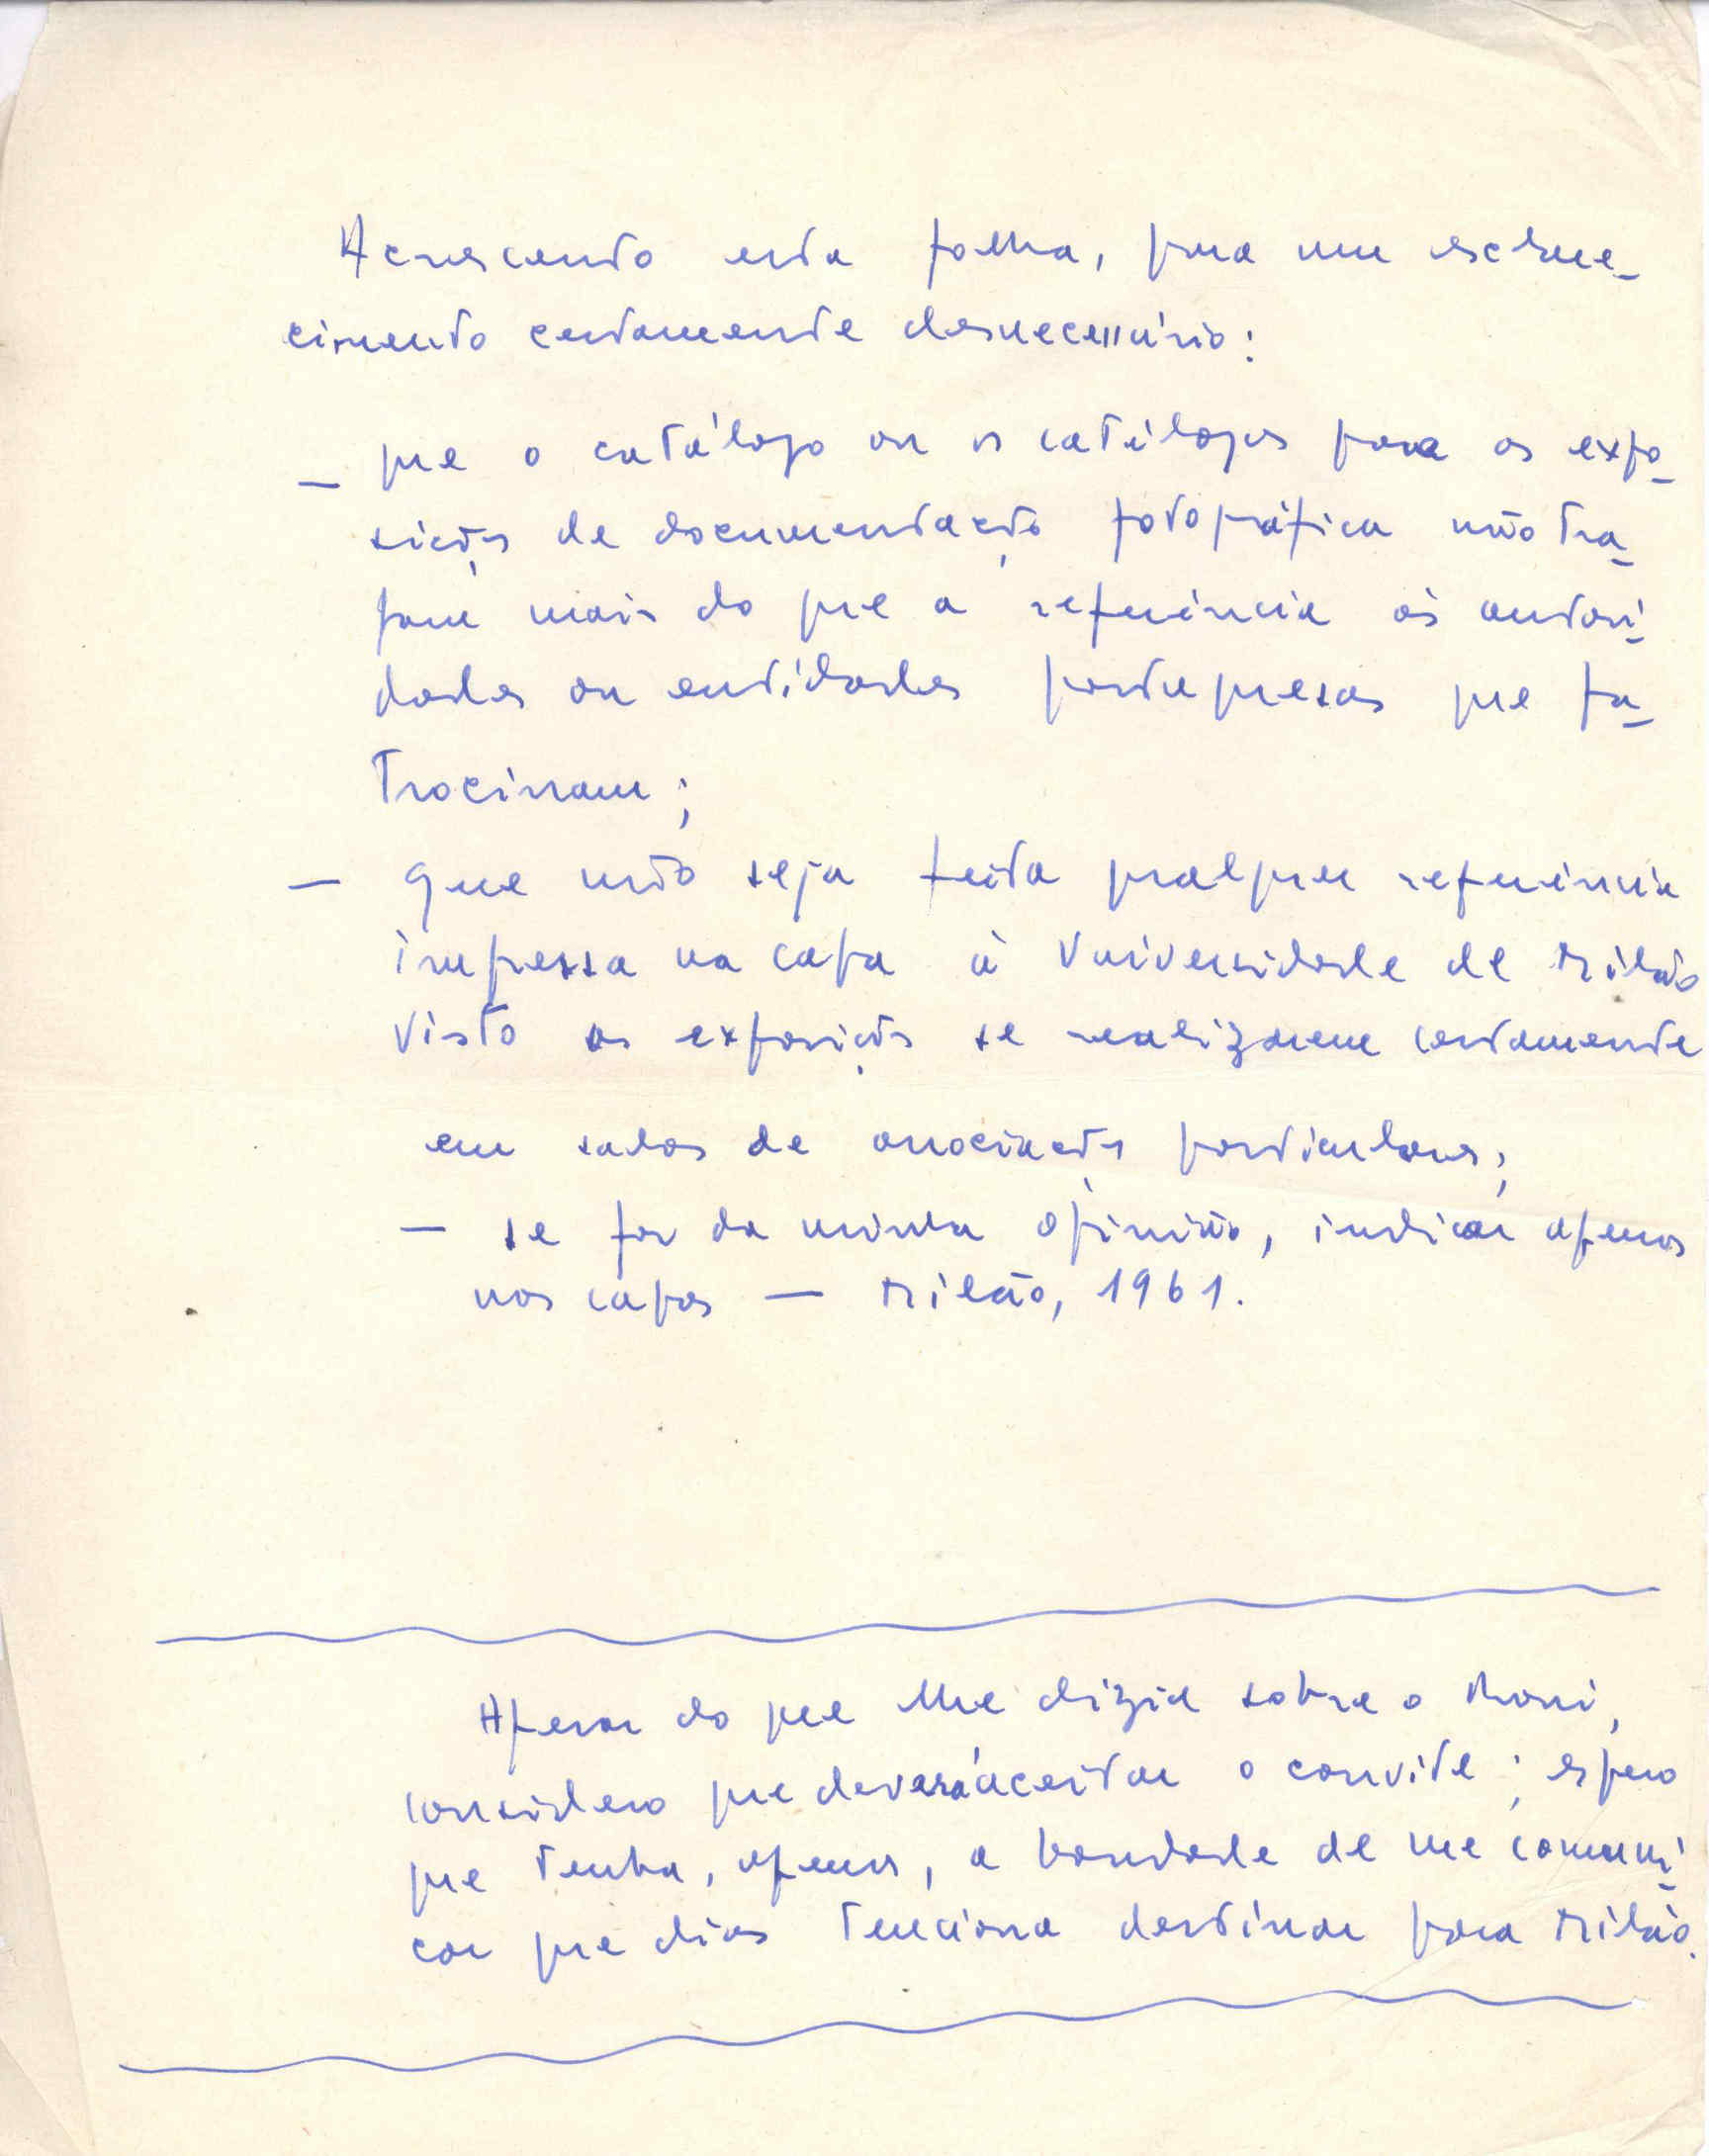 Acrescento esta folha, para um esclare-
cimento certamente desnecessário:
- que o catálogo ou os catálogos para as expo-
sições de documentação fotográfica não tra-
gam mais do que a referência às autori-
dades ou entidades portuguesas que pa-
trocinam;
- que não seja feita qualquer referência
impressa na capa à Universidade de Milão
visto as exposições se realizarem certamente
em salas de associações particulares;
- se for da minha opinião, indicar apenas
nas capas - Milão, 1961.
Apesar do que lhe dizia sobre o
considero que deverá aceitar o convite; espero
que tenha, apenas, a bondade de me comuni-
car que dias tenciona destinar para Milão.